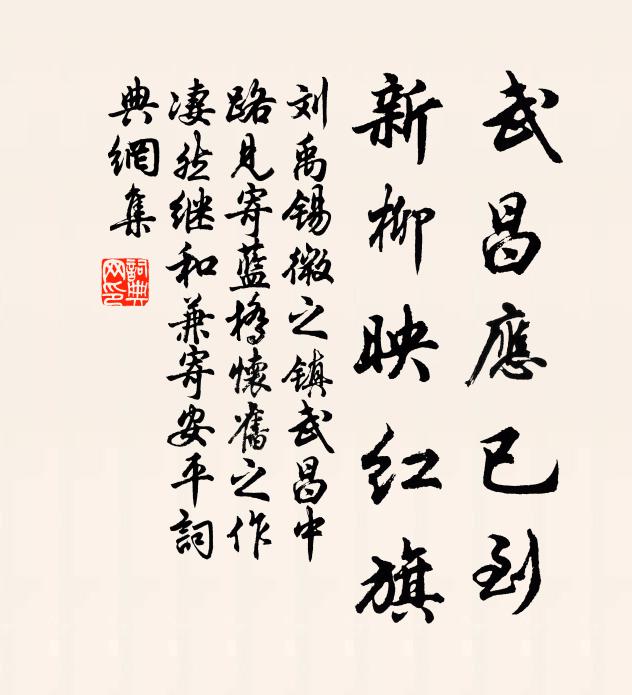 武昌應已到
新柳映红旗
刘禹锡微之镇武昌中
路見寄藍橋懷舊之作
凄然继和兼寄安平詞
典網集
詞典
网印